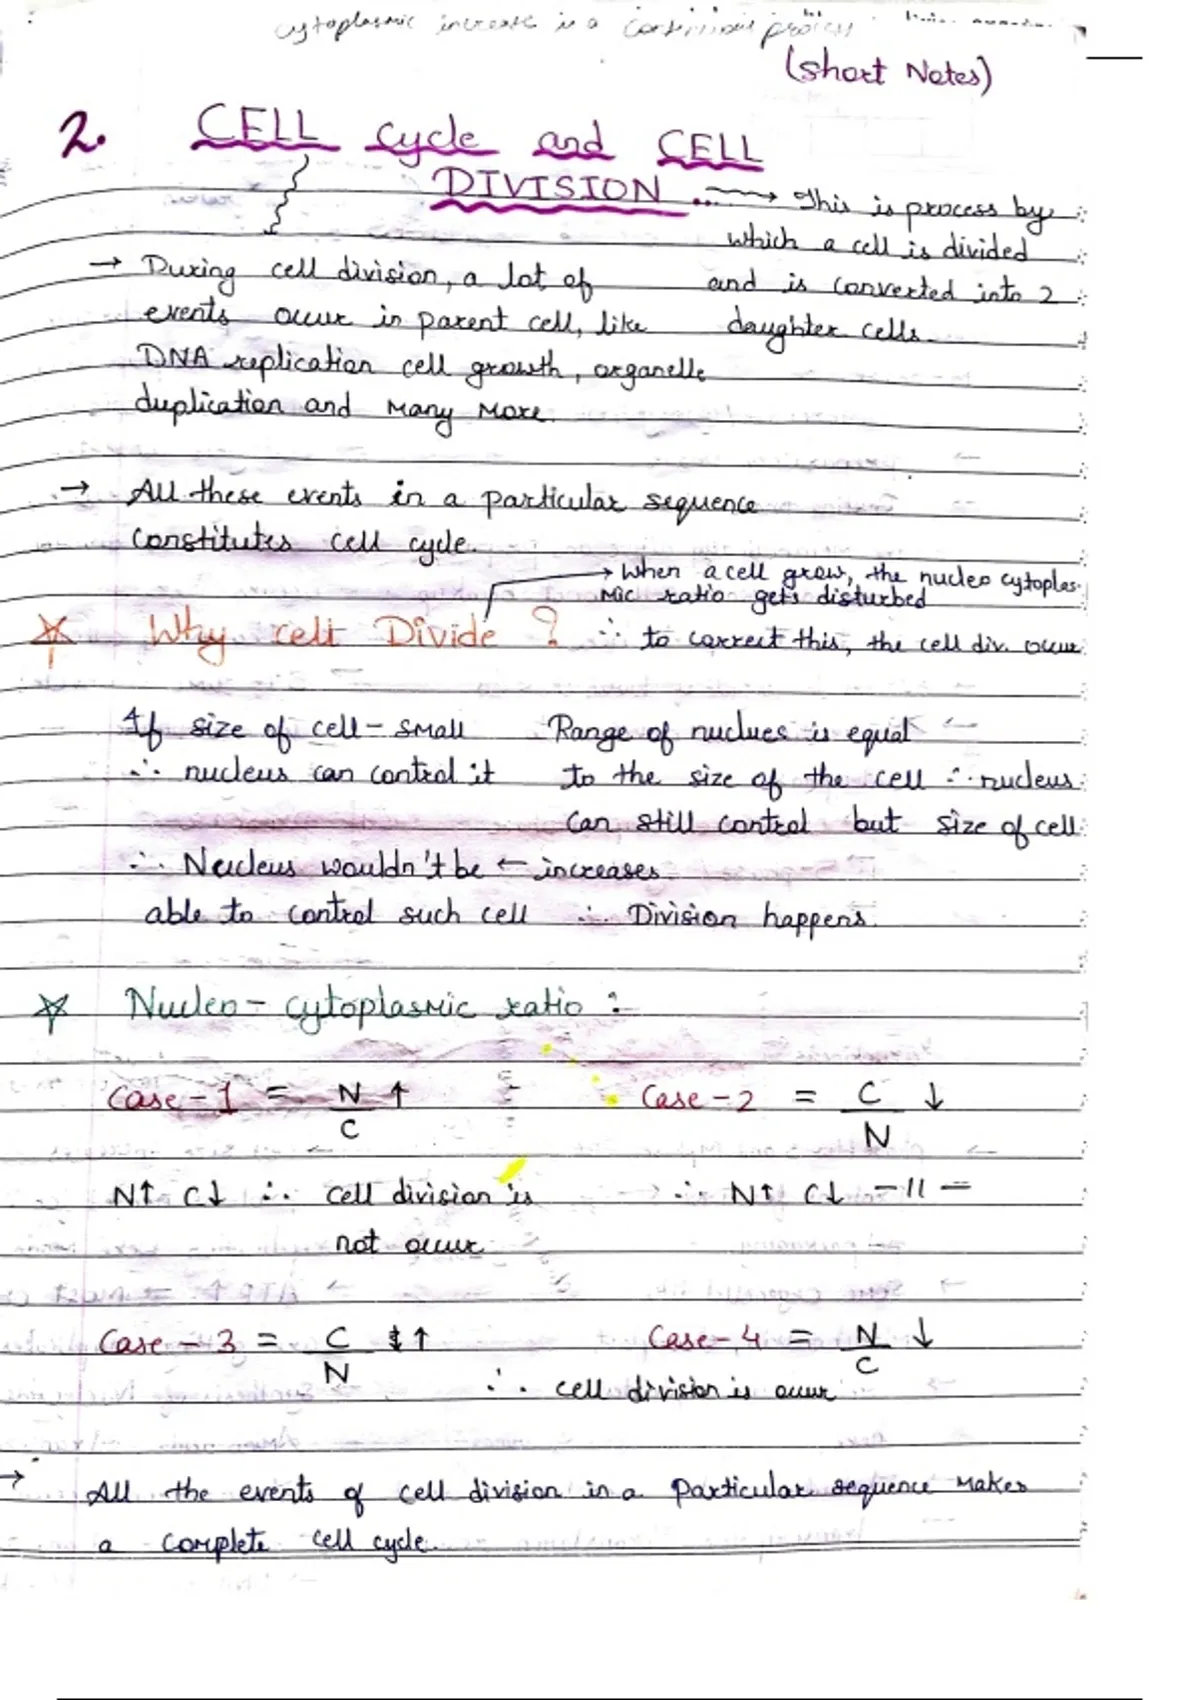 cytoplasmic increase is a continious process
(short Notes)
2. CELL cycle and CELL
DIVISION ... → This is process by
which a cell is divided
and is converted into 2
daughter cells.
→ During cell division, a lot of
events occur in parent cell, like
DNA replication cell growth, organelle
duplication and many more.
→ All these events in a particular sequence
constitutes cell cycle.
→ When a cell grow, the nucleo cytoplas-
mic ratio gets disturbed
Why cell Divide ? ∴ to correct this, the cell div. occur
If size of cell - small
∴ nucleus can control it
Range of nuclues is equal
to the size of the cell ∴ nucleus
can still control but size of cell
∴ Nucleus wouldn't be ← increases
able to control such cell ∴ Division happens.
Nucleo - cytoplasmic ratio :-
Case - 1 = N ↑
C
Case - 2 = C ↓
N
N↑ C↓ ∴ cell division is
not occur
∴ N↑ C↓ -11-
Case - 3 = C ↑
N
Case - 4 = N ↓
C
∴ cell division is occur
→ All the events of cell division in a particular sequence makes
a complete cell cycle.